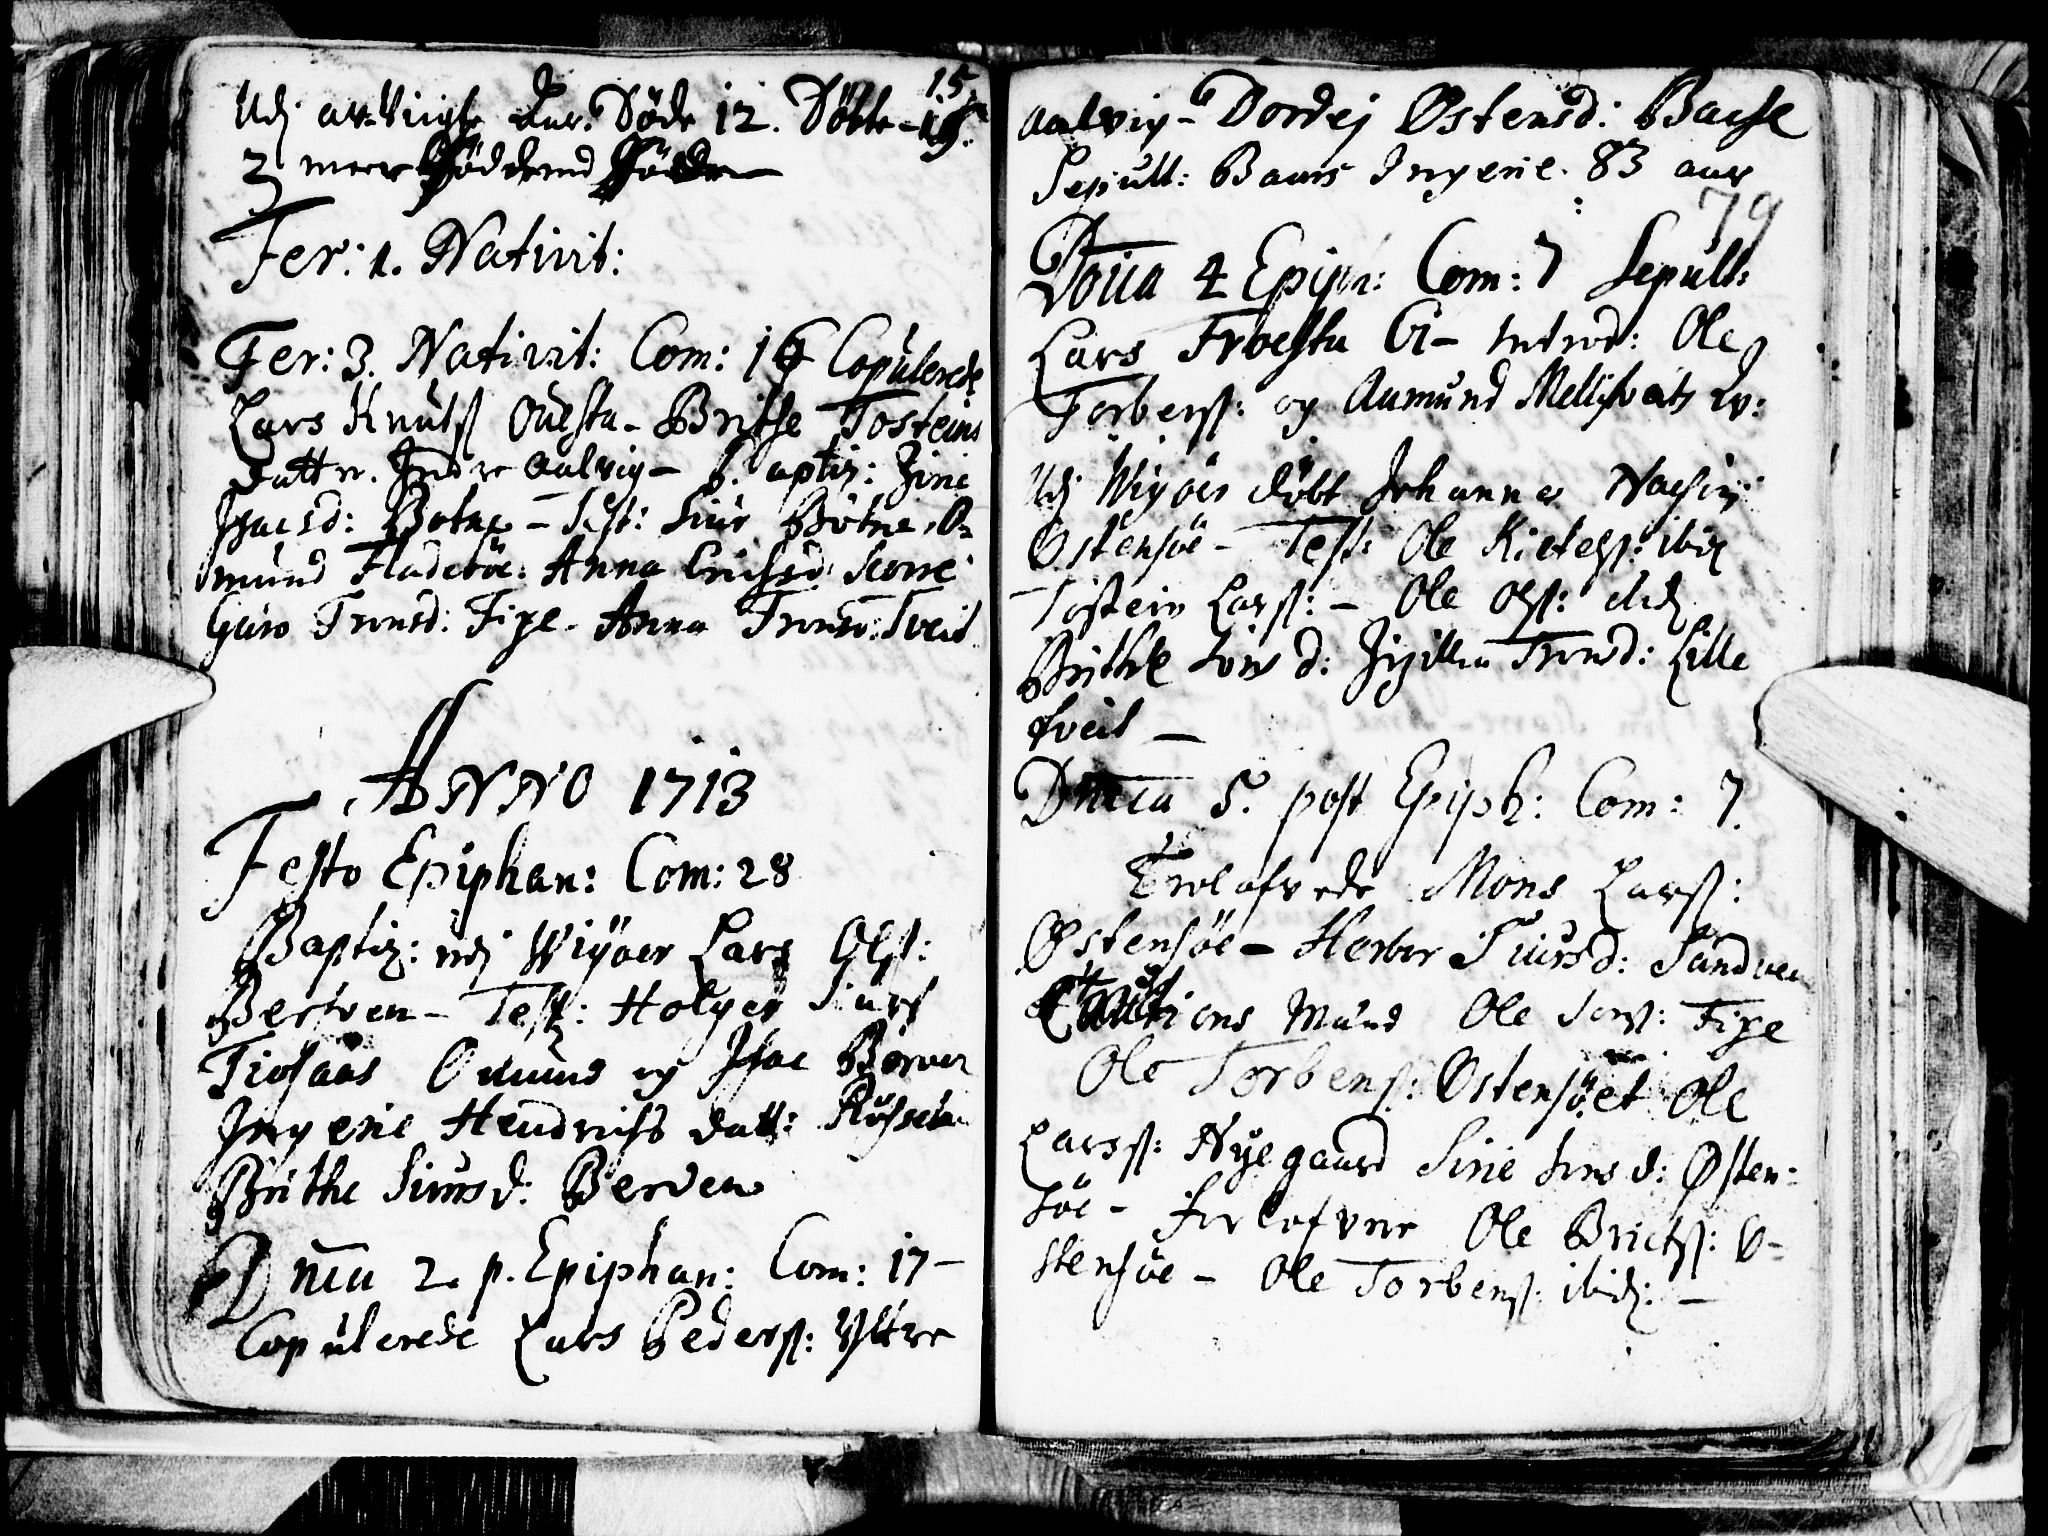 Udj ar: Vigte Dur. Döde 12. Döbte - 15.
3 meer Föddemd Döde
Fer: 1. Nativit:
Fer: 3. Nativit: Com: 16 Copulerede
Lars Knutß Ouesta - Brithe Tosteins
datter. Indre Aalvig - Baptiz: Zirie
Isacsd: Botne - Test: Siur Botne, O-
mund Fladeböe: Anna Erichsd Scorre
Guro Tronsd: Fixe. Anna Tronsd: Tveit
ANNO 1713
Festo Epiphan: Com: 28
Baptiz: udj Wiÿöer Lars Olß:
Berven - Test: Holger Siurß
Tiosaas Omund og Isac Berven
Ingerie Hendrichs datt: Röfseland
Brithe Siursd: Berven
Dnica 2. p. Epiphan: Com: 17 -
Copulerede Lars Pederß: Ÿttre
Aalvig - Dordej Østensd: Bache
Sepult: Baars Ingerie. 83 aar
79
Doica 4 Epiph: Com: 7 Sepult:
Lars Troesta - Introd: Ole
Torberß: og Aamund Mellstveits
Udj Wiÿöer döbt Johannes
Östensöe - Test: Ole Kietelß: ibid
Tostein Larß: - Ole Olß: ibid
Brithe Jonsd: Zizillia Tronsd: Lille
tveit -
Dnica 5. post Epiph: Com: 7.
Trolofvede Mons Larß:
Østensöe - Herbor Siursd: Sandven
Cautions Mænd Ole Jonß: Fixe
Ole Torbenß: Østensöe et Ole
Larsß: Nyegaard Sirie Jonsd: Østen:
söe - Forlofvere Ole Brictß: Ö-
stensöe - Ole Torbenß: ibid: -